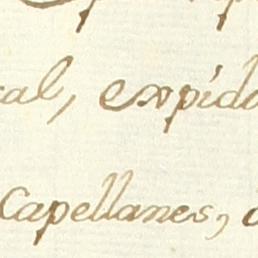 al, expid
Capellanes,